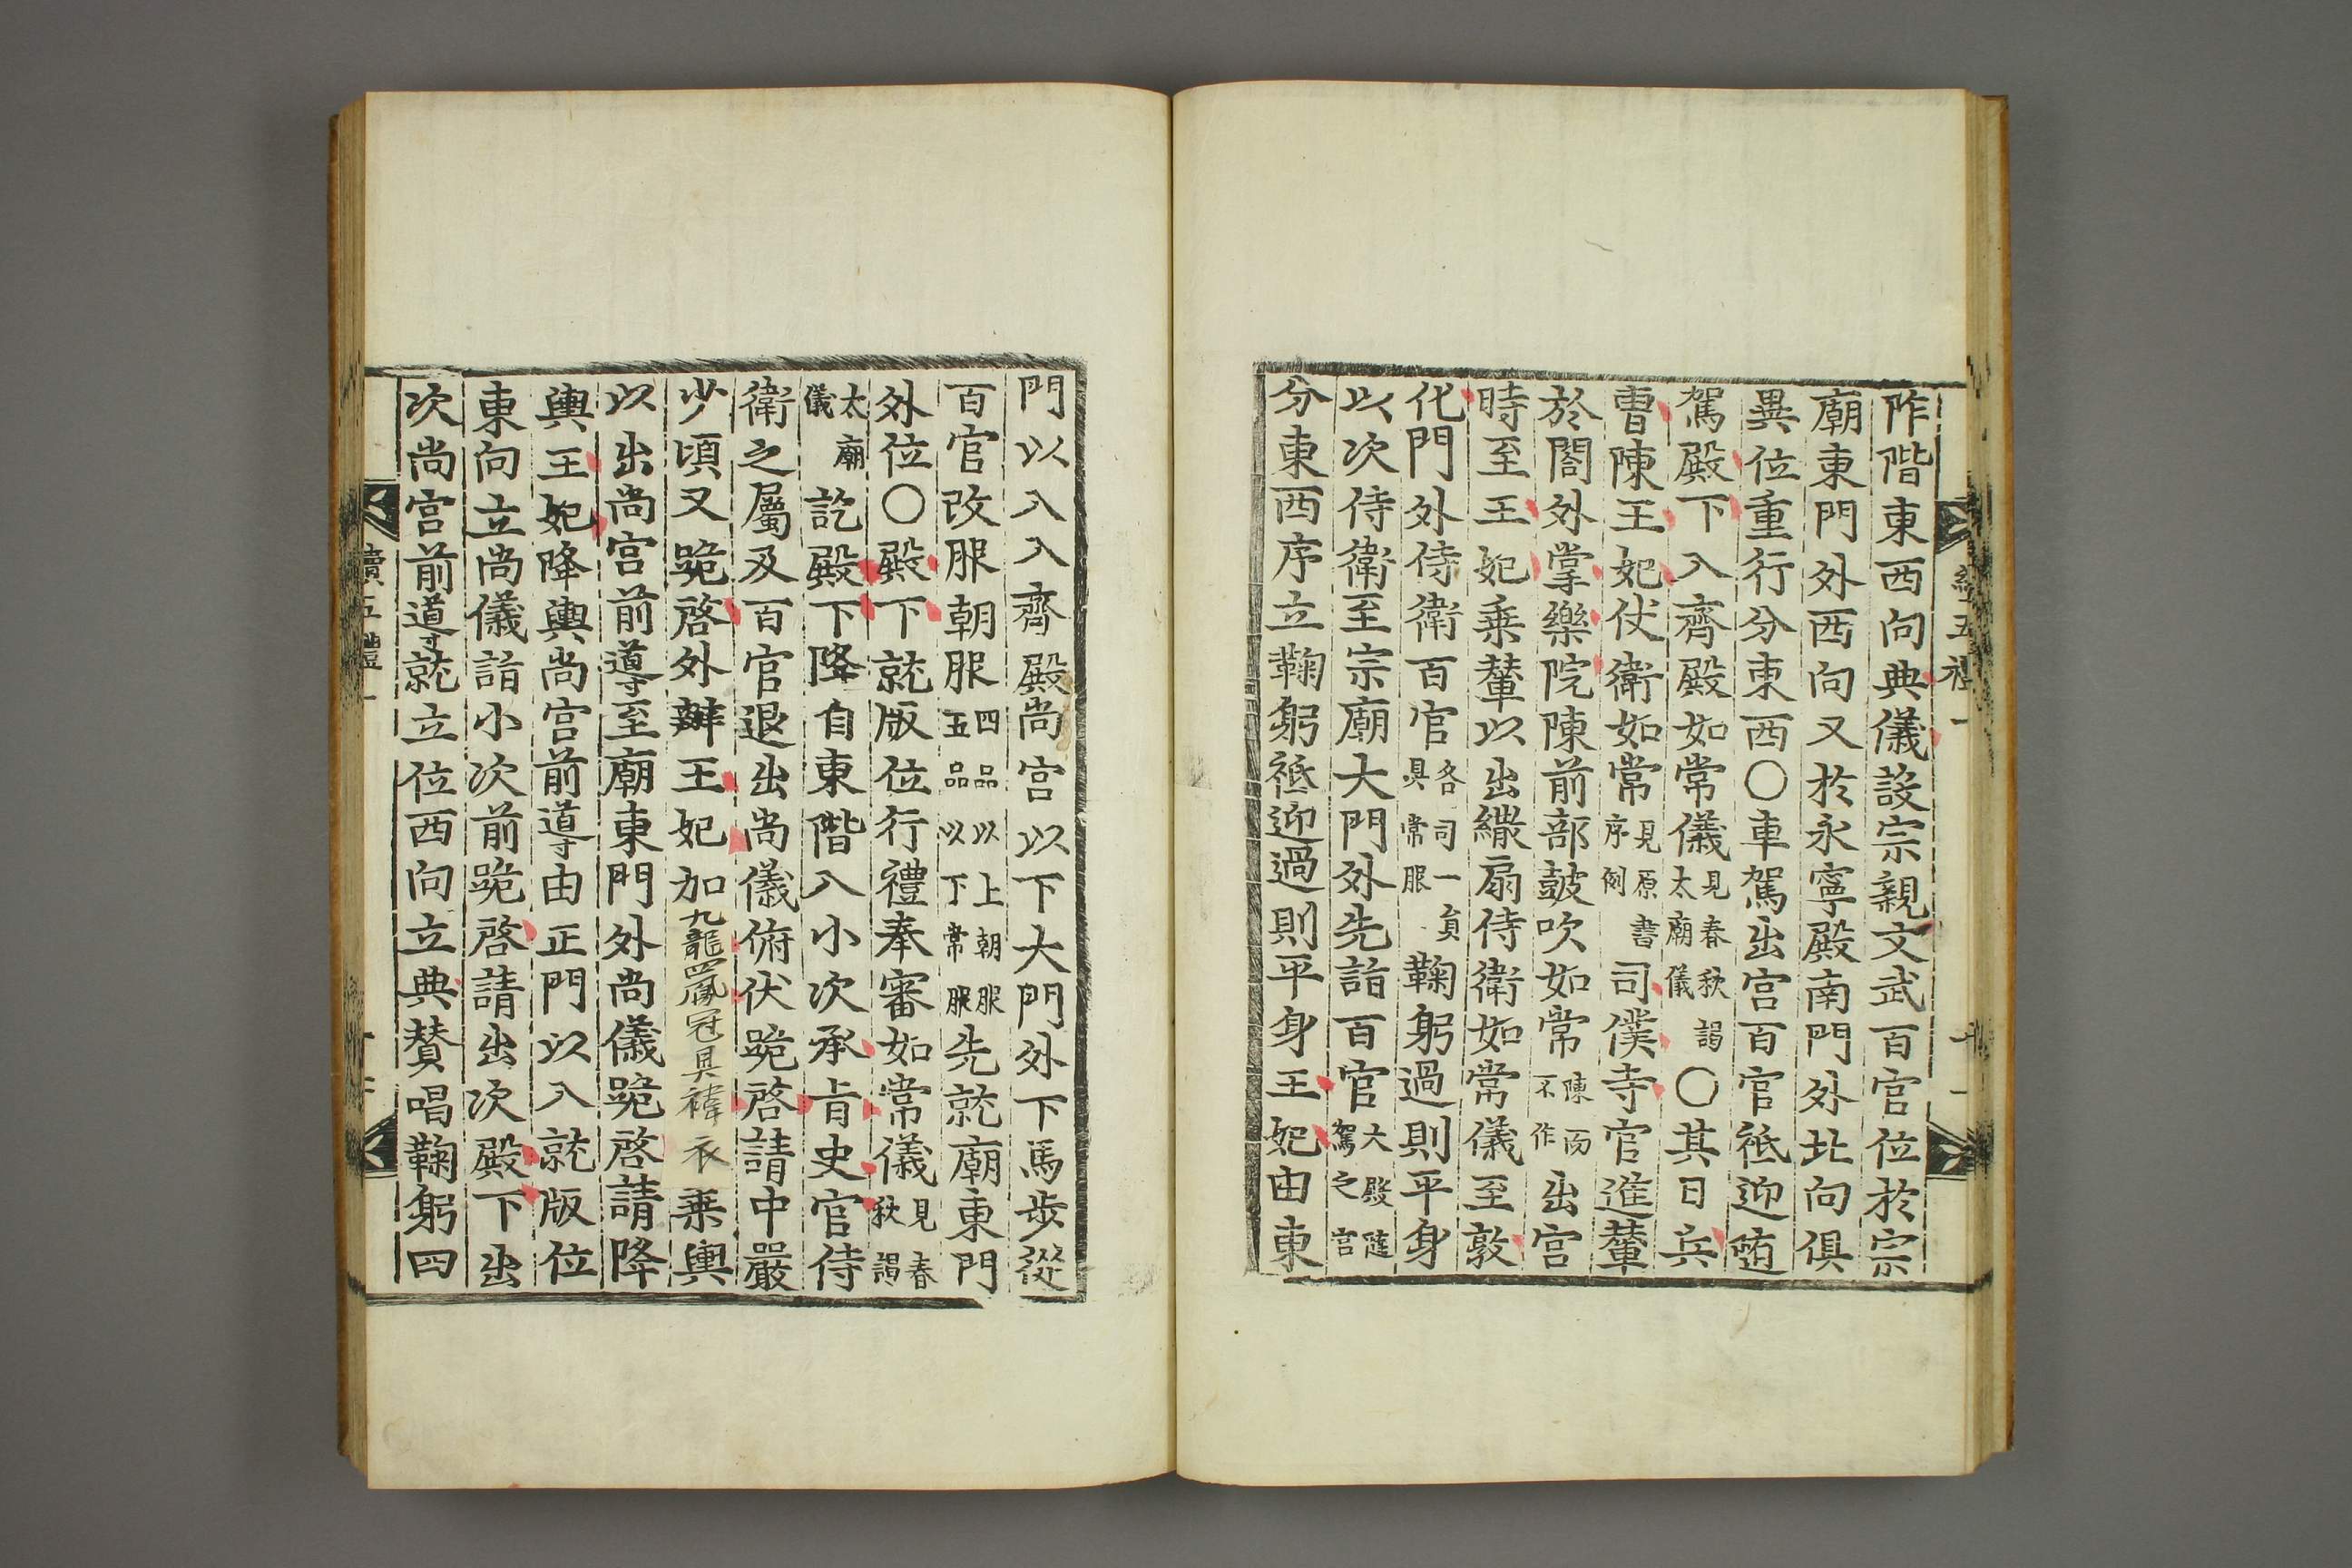 阼階東西向典儀設宗親文武百官位於宗
廟東門外西向又於永寧殿南門外北向俱
異位重行分東西〇車駕出宮百官祗迎隨
駕殿下入齊殿如常儀見春秋謁太廟儀〇其日兵
曹陳王妃仗衛如常見原書序例司僕寺官進輦
於閤外掌樂院陳前部鼓吹如常陳而不作出宮
時至王妃乘輦以出繖扇侍衛如常儀至敦
化門外侍衛百官各司一員具常服鞠躬過則平身
以次侍衛至宗廟大門外先詣百官大殿隨駕之官
分東西序立鞠躬祗迎過則平身王妃由東
門以入入齊殿尚宮以下大門外下馬步從
百官改服朝服四品以上朝服五品以下常服先就廟東門
外位〇殿下就版位行禮奉審如常儀見春秋謁
太廟儀訖殿下降自東階入小次承旨史官侍
衛之屬及百官退出尚儀俯伏跪啓請中嚴
少頃又跪啓外辦王妃加九龍四鳳冠具褘衣乘輿
以出尚宮前導至廟東門外尚儀跪啓請降
輿王妃降輿尚宮前導由正門以入就版位
東向立尚儀詣小次前跪啓請出次殿下出
次尚宮前導就立位西向立典贊唱鞠躬四
續五禮一